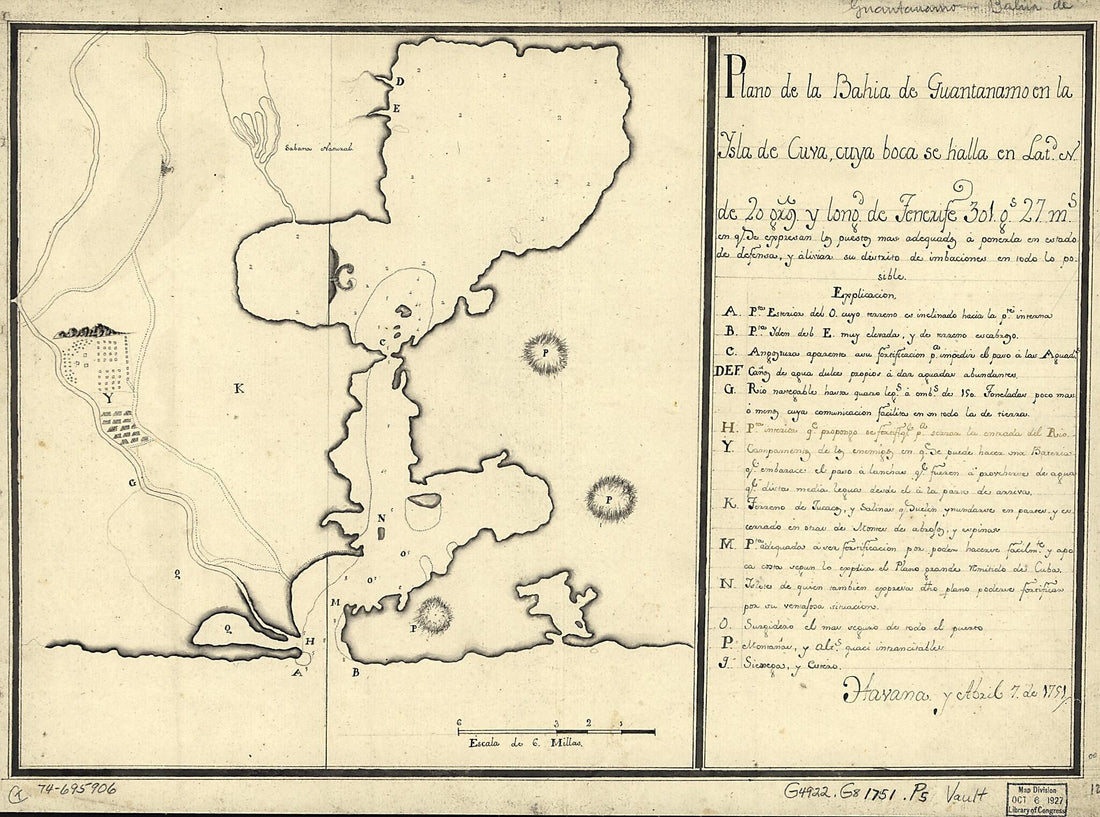 Guantanamo - Bahia de
Plano de la Bahia de Guantanamo en la
Ysla de Cuva, cuya boca se halla en Latd. N.
de 20 grs. y longd. de Tenerife 301. gs. 27. ms.
en q. se expresan los puestos mas adequados à ponerla en estado
de defensa, y àliviar su destrito de imbaciones en todo lo po-
sible.
Explicacion.
A. Pta. Esterior del O. cuyo terreno es inclinado hacia la pte. interna
B. Pta. Yden del E. muy elevada, y de terreno escabroso.
C. Angostura aparente a su fortificacion pa. impedir el paso à las Aguads.
DEF Caños de agua dulce propios à dar aguadas abundantes.
G. Rio navegable hasta quatro legs. à embs. de 150. Toneladas poco mas
ò menos cuya comunicacion facilita en un todo la de tierra.
H. Pta. interior qe. propongo se fortifiqe. pa. serrar la entrada del Rio.
Y. Campamento de los enemigos en qe. se puede hacer una Bateria
qe. embarace el paso à lanchas qe. fueren à proveherse de agua
qe. dista media legua desde el à la parte de arriva.
K. Terreno de Tucacos, y Salinas q. suelen ynundarse en partes, y en-
cerrado en otras de Montes de abrojos, y espinas
M. Pta. adequada à ser fortificacion por poder hacerse facilmte. y apo-
ca costa segun lo explica el Plano grande remitido de Cuba.
N. Yslote de quien tambien expresa dho. plano poderse fortificar
por su ventajosa situacion.
O. Surgidero el mas seguro de todo el puerto.
P. Montañas, y Alts. quaci intransitables
Q. Sienega, y Estero.
Havana y Abril 7. de 1751
D
E
Sabana Natural
2
G
C
P
Y
K
G
P
N
O
O
Q
M
P
Q
H
A
B
6 3 2 1
Escala de 6. Millas.
74-695906
G4922.G8 1751.P5 Vault
Map Division
OCT 6 1927
Library of Congress